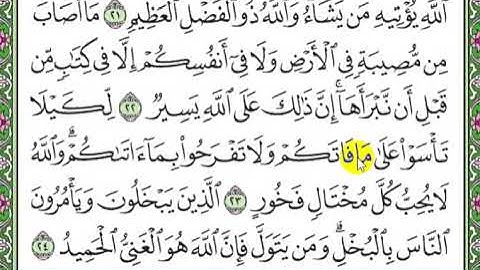 ٱللَّهِ يُؤْتِيهِ مَن يَشَآءُ وَٱللَّهُ ذُو ٱلْفَضْلِ ٱلْعَظِيمِ ٢١ مَآ أَصَابَ
مِن مُّصِيبَةٍ فِي ٱلْأَرْضِ وَلَا فِيٓ أَنفُسِكُمْ إِلَّا فِي كِتَٰبٍ مِّن
قَبْلِ أَن نَّبْرَأَهَآ إِنَّ ذَٰلِكَ عَلَى ٱللَّهِ يَسِيرٌ ٢٢ لِّكَيْلَا
تَأْسَوْا۟ عَلَىٰ مَا فَاتَكُمْ وَلَا تَفْرَحُوا۟ بِمَآ ءَاتَىٰكُمْ ۗ وَٱللَّهُ
لَا يُحِبُّ كُلَّ مُخْتَالٍ فَخُورٍ ٢٣ ٱلَّذِينَ يَبْخَلُونَ وَيَأْمُرُونَ
ٱلنَّاسَ بِٱلْبُخْلِ ۗ وَمَن يَتَوَلَّ فَإِنَّ ٱللَّهَ هُوَ ٱلْغَنِيُّ ٱلْحَمِيدُ ٢٤